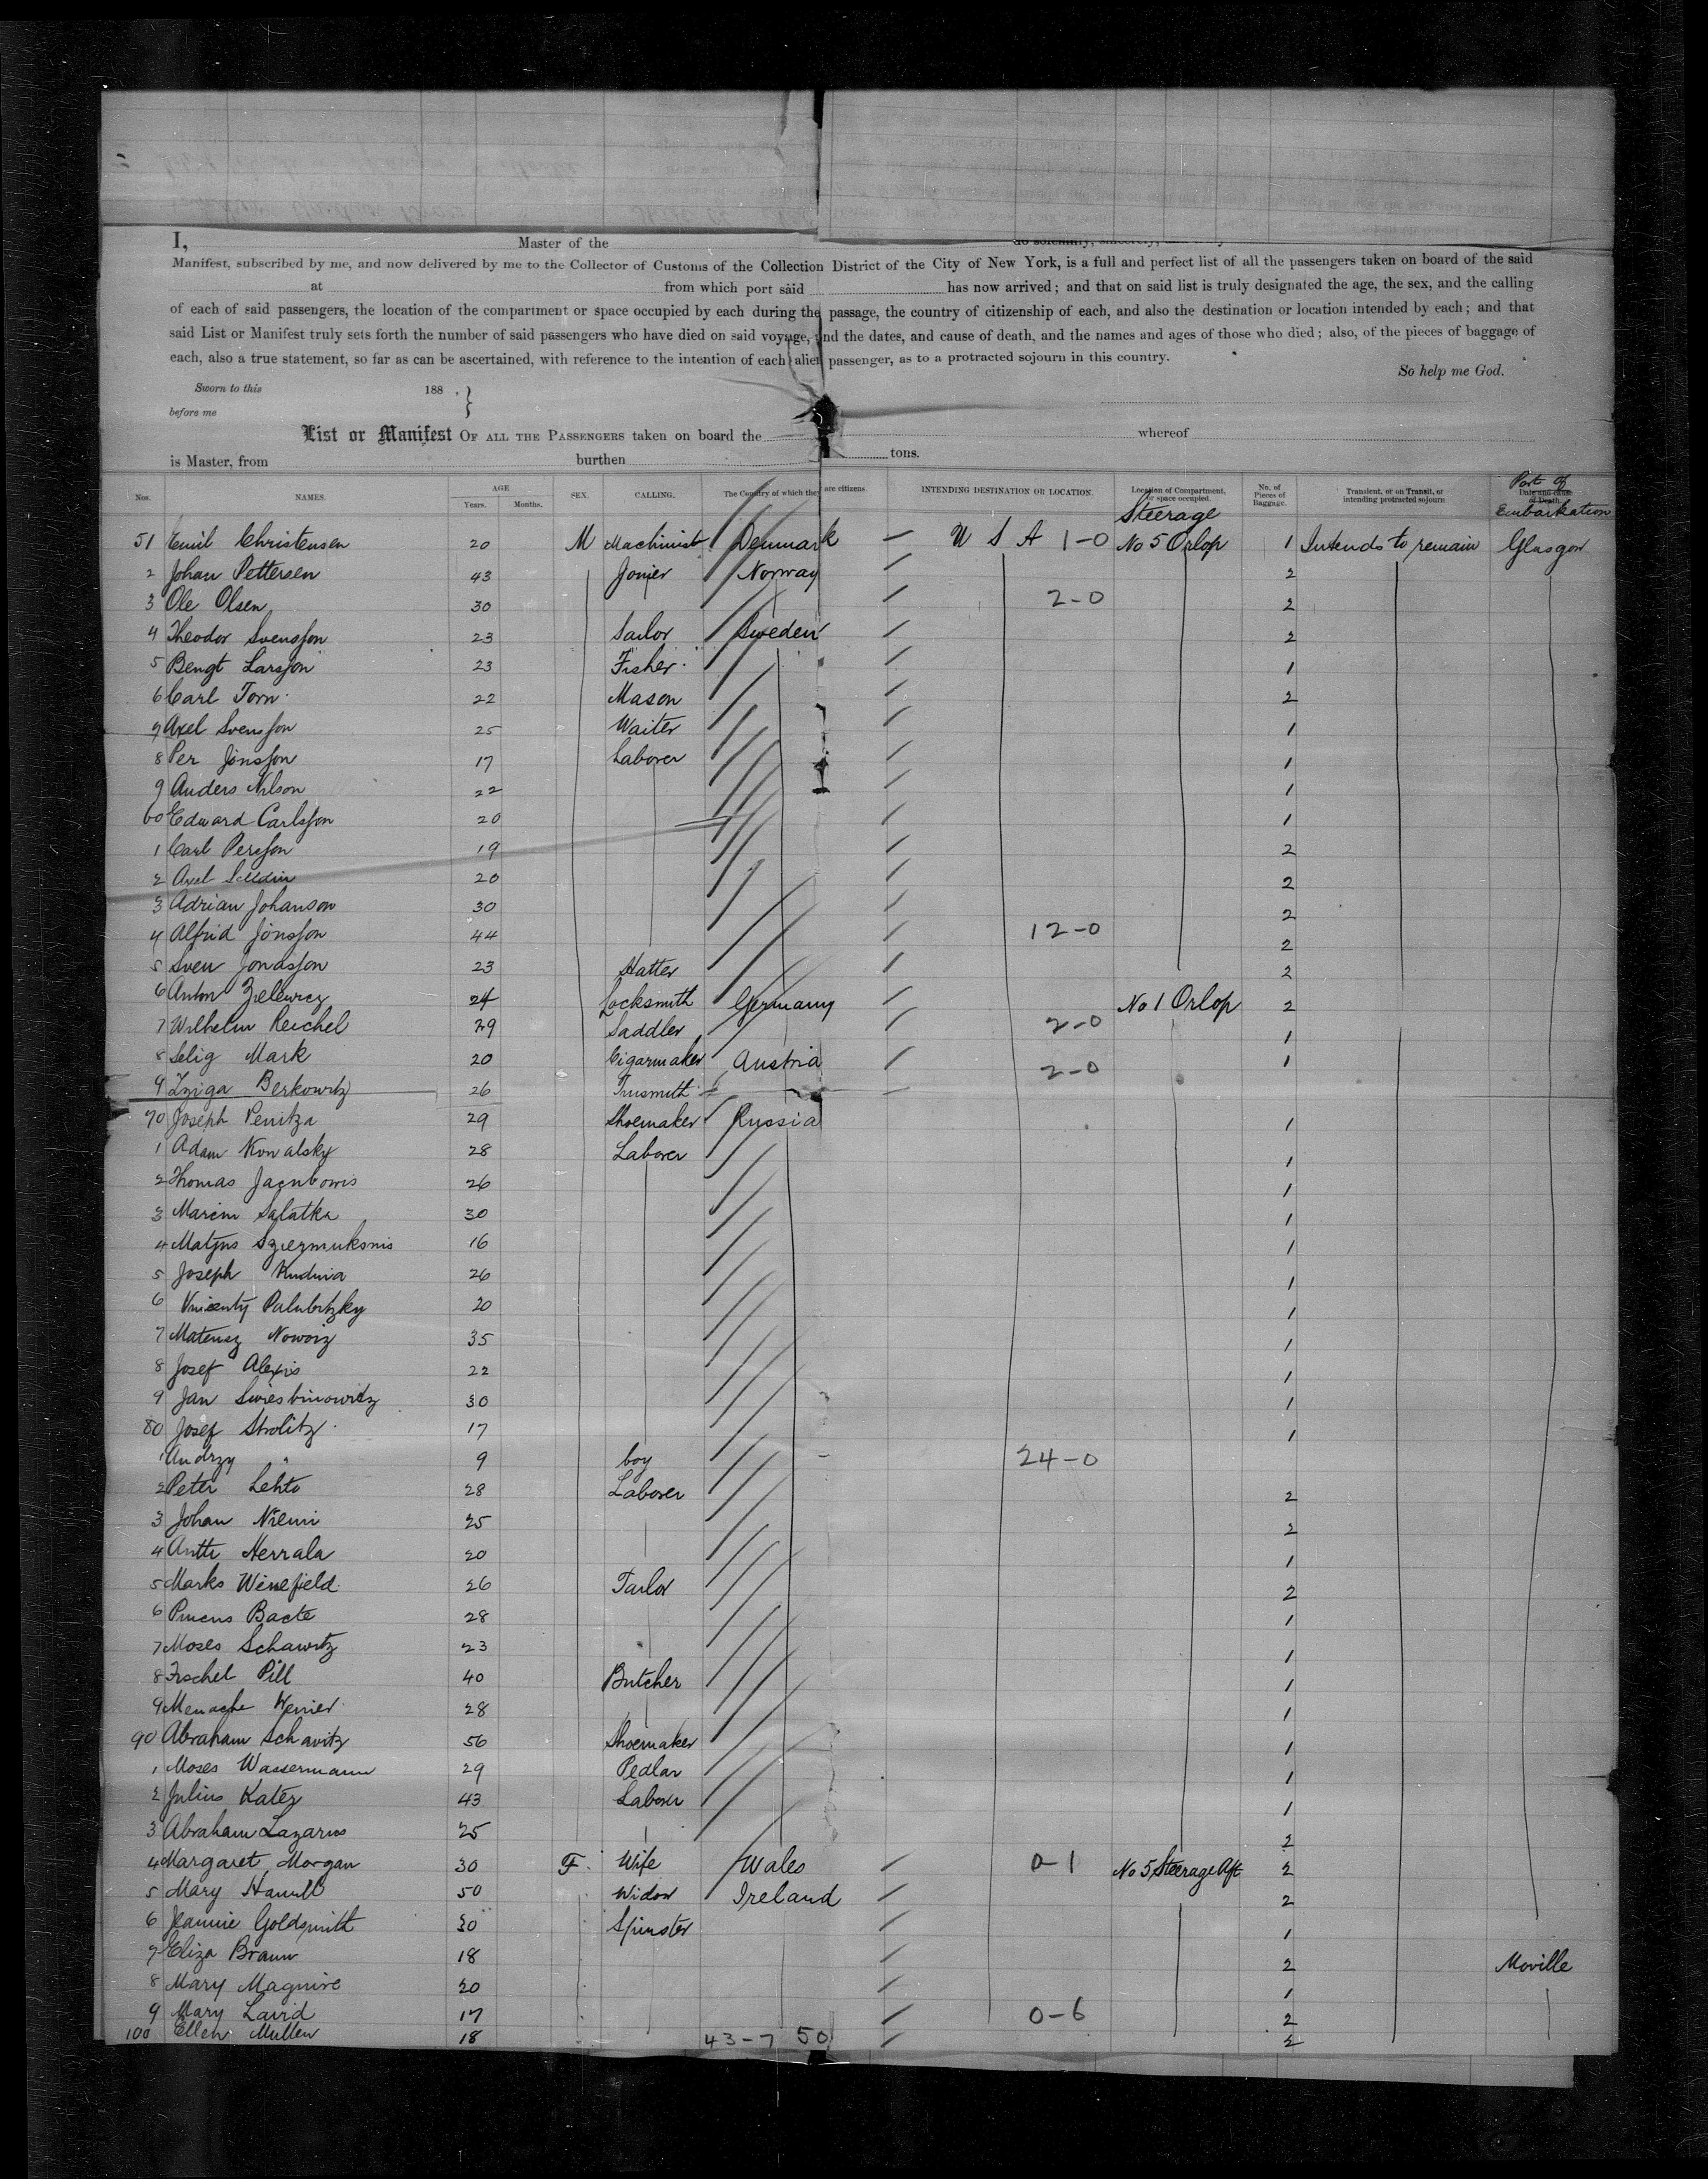 I, Master of the
Manifest, subscribed by me, and now delivered by me to the Collector of Customs of the Collection District of the City of New York, is a full and perfect list of all the passengers taken on board of the said
at from which port said has now arrived; and that on said list is truly designated the age, the sex, and the calling
of each of said passengers, the location of the compartment or space occupied by each during the passage, the country of citizenship of each, and also the destination or location intended by each; and that
said List or Manifest truly sets forth the number of said passengers who have died on said voyage, and the dates, and cause of death, and the names and ages of those who died; also, of the pieces of baggage of
each, also a true statement, so far as can be ascertained, with reference to the intention of each alien passenger, as to a protracted sojourn in this country.
So help me God.
Sworn to this 188 . }
before me
List or Manifest OF ALL THE PASSENGERS taken on board the whereof
is Master, from burthen tons.
Nos. NAMES. AGE Years. Months. SEX. CALLING. The Country of which they are citizens INTENDING DESTINATION OR LOCATION. Location of Compartment, or space occupied. No. of Pieces of Baggage. Transient, or on Transit, or intending protracted sojourn Date and cause of Death. Port of Embarkation
Steerage
51 Emil Christensen 20 M Machinist Denmark U S A 1-0 No 5 Orlop 1 Intends to remain Glasgow
2 Johan Pettersen 43 Jonier Norway 2
3 Ole Olsen 30 2-0 2
4 Theodor Svensson 23 Sailor Sweden 2
5 Bengt Larsson 23 Fisher 1
6 Carl Torn 22 Mason 2
7 Axel Svensson 25 Waiter 1
8 Per Jönsson 17 Laborer 1
9 Anders Nilson 22 1
60 Edward Carlsson 20 1
1 Carl Persson 19 2
2 Axel 20 2
3 Adrian Johanson 30 2
4 Alfrid Jönsson 44 12-0 2
5 Sven Jonasson 23 Hatter 2
6 Anton Zielewicz 24 Locksmith Germany No 1 Orlop 2
7 Wilhelm Reichel 29 Saddler 2-0 1
8 Selig Mark 20 Cigarmaker Austria 2-0 1
9 Berkowitz 26 Tinsmith
70 Joseph Penitza 29 Shoemaker Russia 1
1 Adam Kowalsky 28 Laborer 1
2 Thomas 26 1
3 Marcin Salatka 30 1
4 16 1
5 Joseph Kudwia 26 1
6 Vincenty Palubitzky 20 1
7 Mateusz Nowoiz 35 1
8 Josef Alexis 22 1
9 Jan 30 1
80 Josef Strolitz 17 1
1 Andrzy " 9 boy 24-0
2 Peter Lehto 28 Laborer 2
3 Johan Niemi 25 2
4 Antti Herrala 20 1
5 Marks Winefield 26 Tailor 2
6 Pincus Bacte 28 1
7 Moses Schawitz 23 1
8 Fischel Pill 40 Butcher 1
9 Menache 28 1
90 Abraham Schavitz 56 Shoemaker 1
1 Moses Wassermann 29 Pedlar 1
2 Julius Katez 43 Laborer 1
3 Abraham Lazarus 25 2
4 Margaret Morgan 30 F Wife Wales 0-1 No 5 Steerage Aft 2
5 Mary Hamill 50 Widow Ireland 2
6 Jeannie Goldsmith 30 Spinster 1
7 Eliza Braun 18 2 Moville
8 Mary Maguire 20 1
9 Mary Laird 17 0-6 2
100 Ellen Mullen 18 43-7 50 2